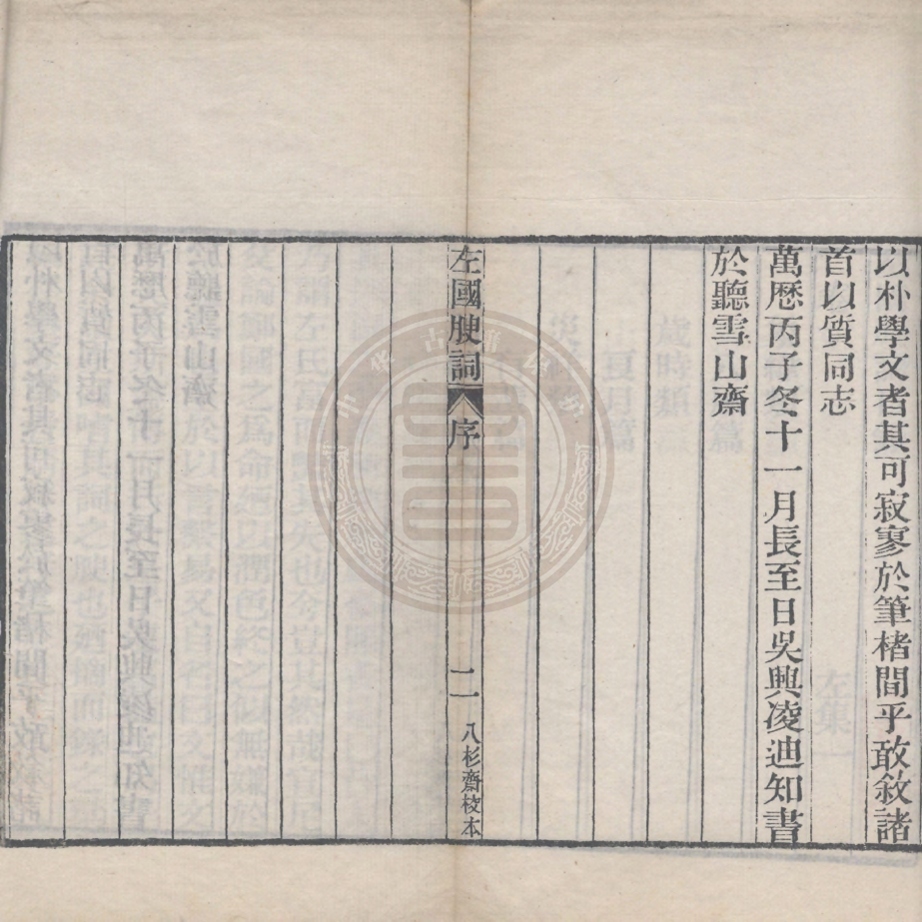 以朴學文者其可寂寥於筆楮間乎敢敘諸
首以質同志
萬歷丙子冬十一月長至日吳興凌迪知書
於聽雪山齋
左國腴詞
序
二
八杉齋校本